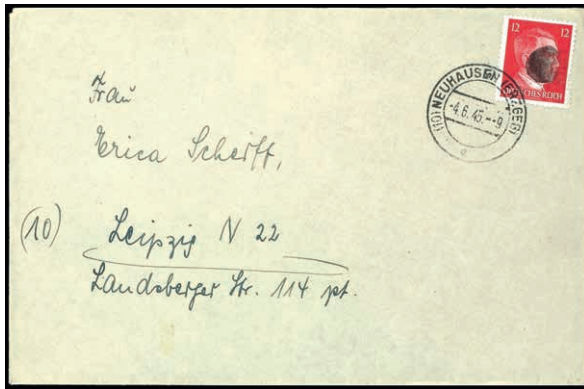 12 12
(10) NEUHAUSEN (ERZGEB)
-4.6.45.--9
a
Frau
Erica Scherff,
(10) Leipzig N 22
Landsberger Str. 114 pt.